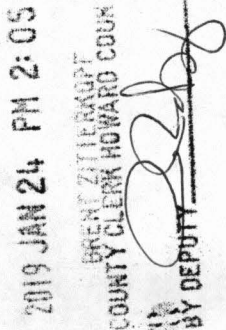 2019 JAN 24 PM 2:05
BRENT ZITTERKOPF
COUNTY CLERK HOWARD COUN
BY DEPUTY